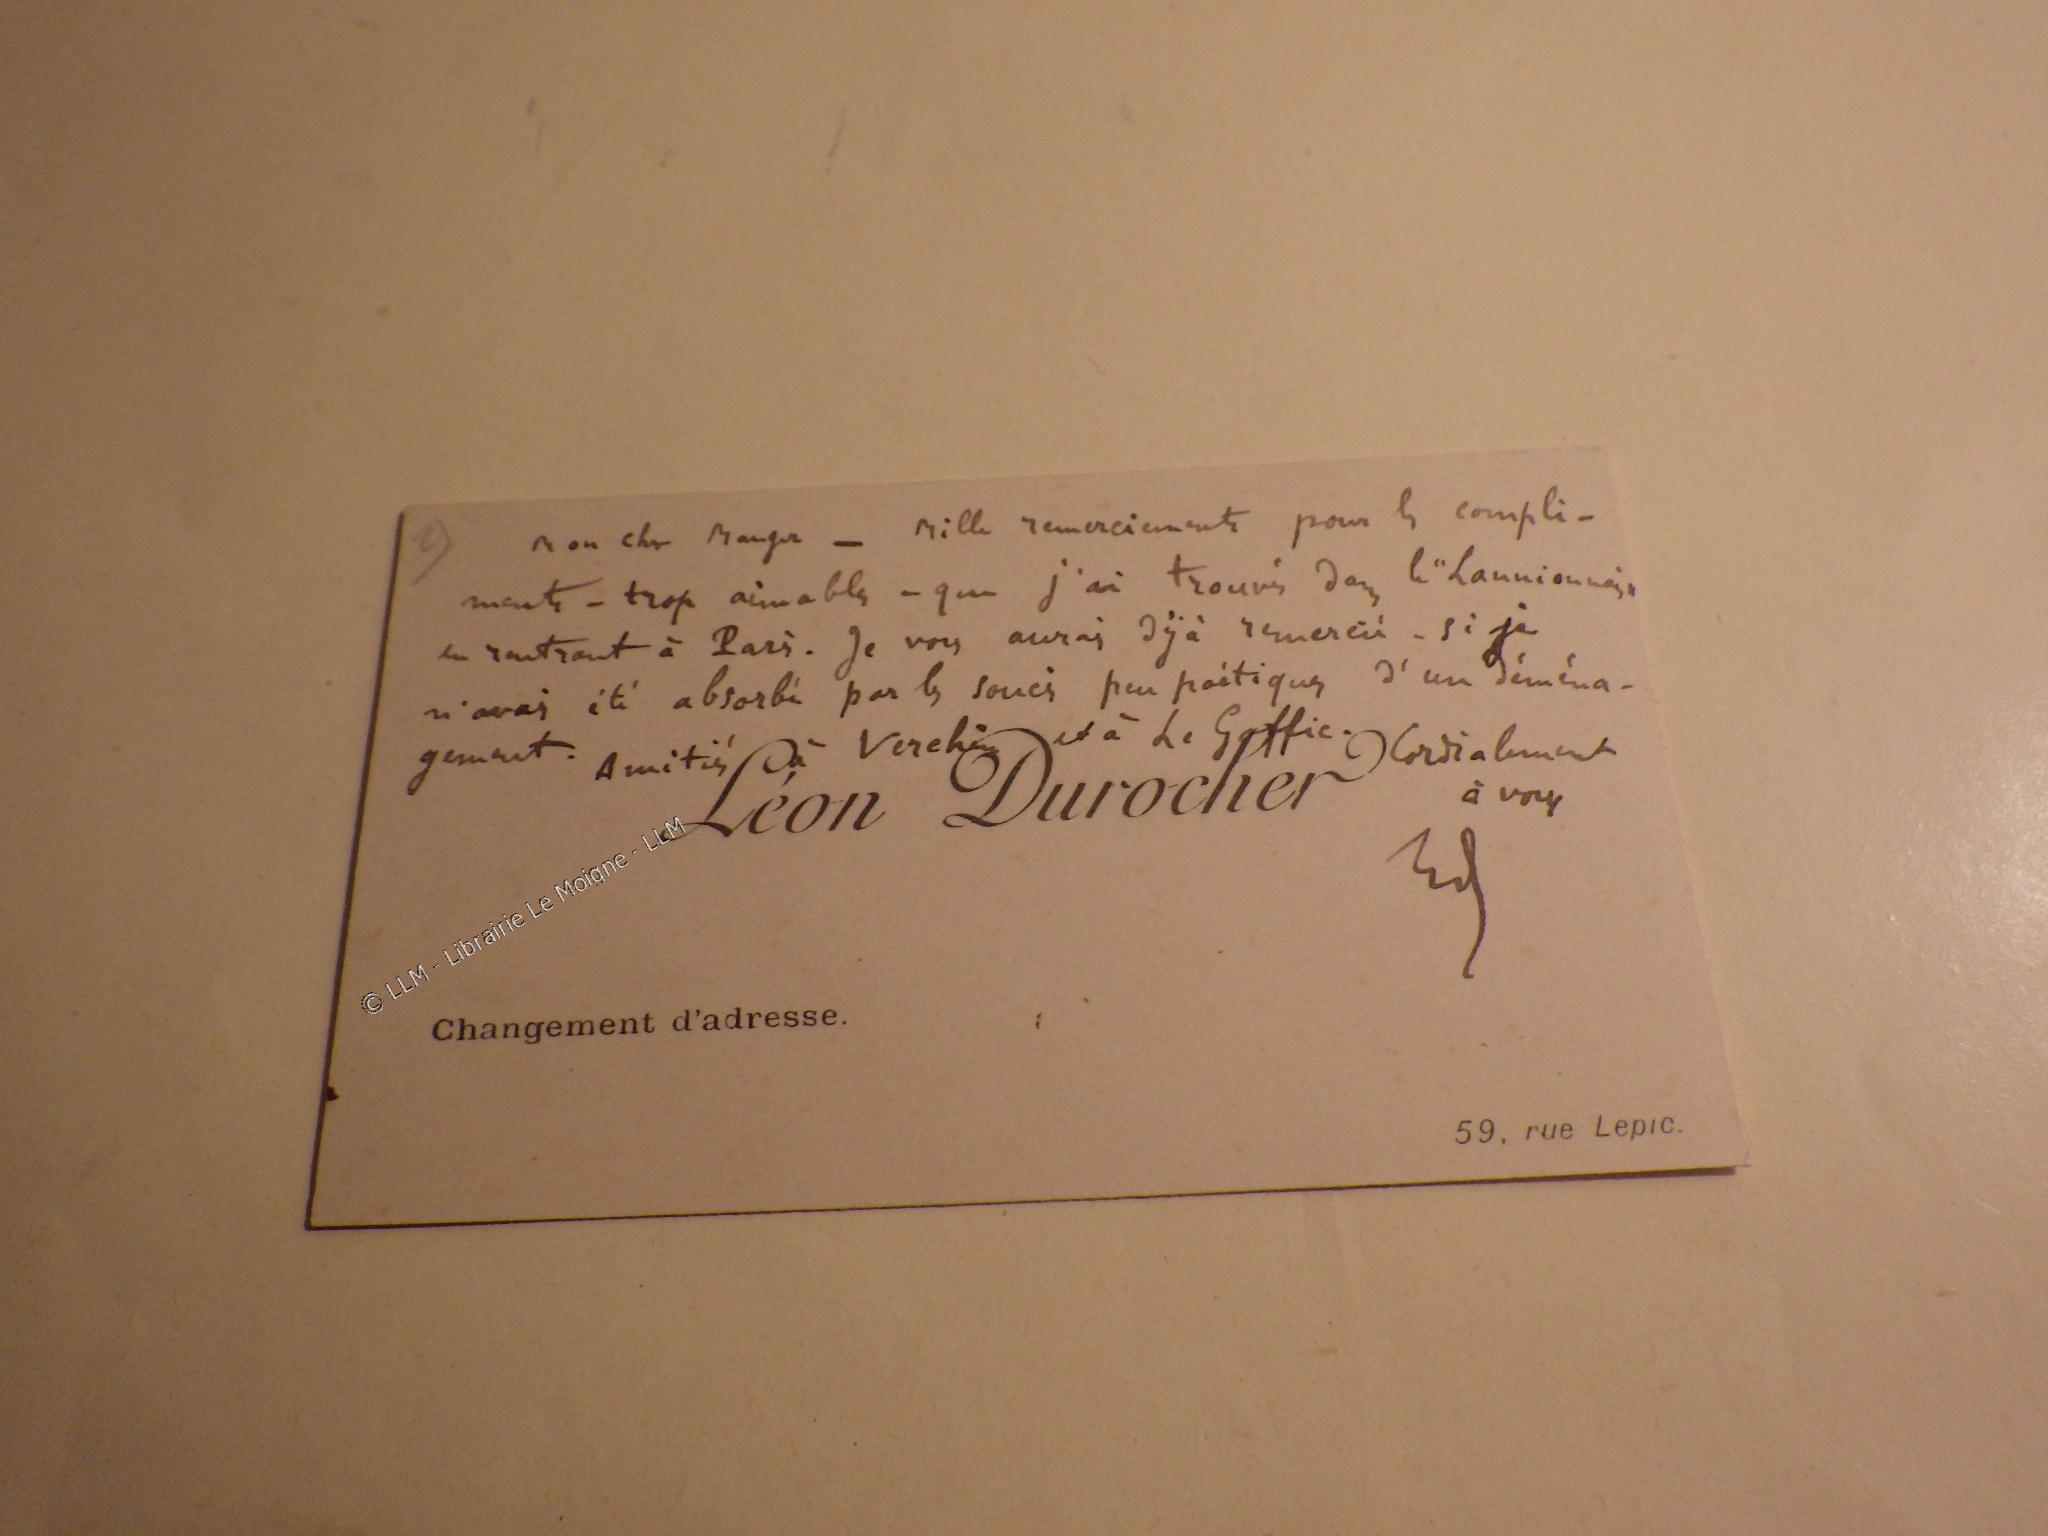 Mon cher Mauger – Mille remerciements pour les compli-
ments – trop aimables – que j'ai trouvés dans le "Lannionnais"
en rentrant à Paris. Je vous aurais déjà remercié – si je
n'avais été absorbé par les soucis peu poétiques d'un déména-
gement. Amitiés à Verchin et à Le Goffic. Cordialement
à vous
Léon Durocher
© LLM - Librairie Le Moigne - LLM
Changement d'adresse.
59, rue Lepic.